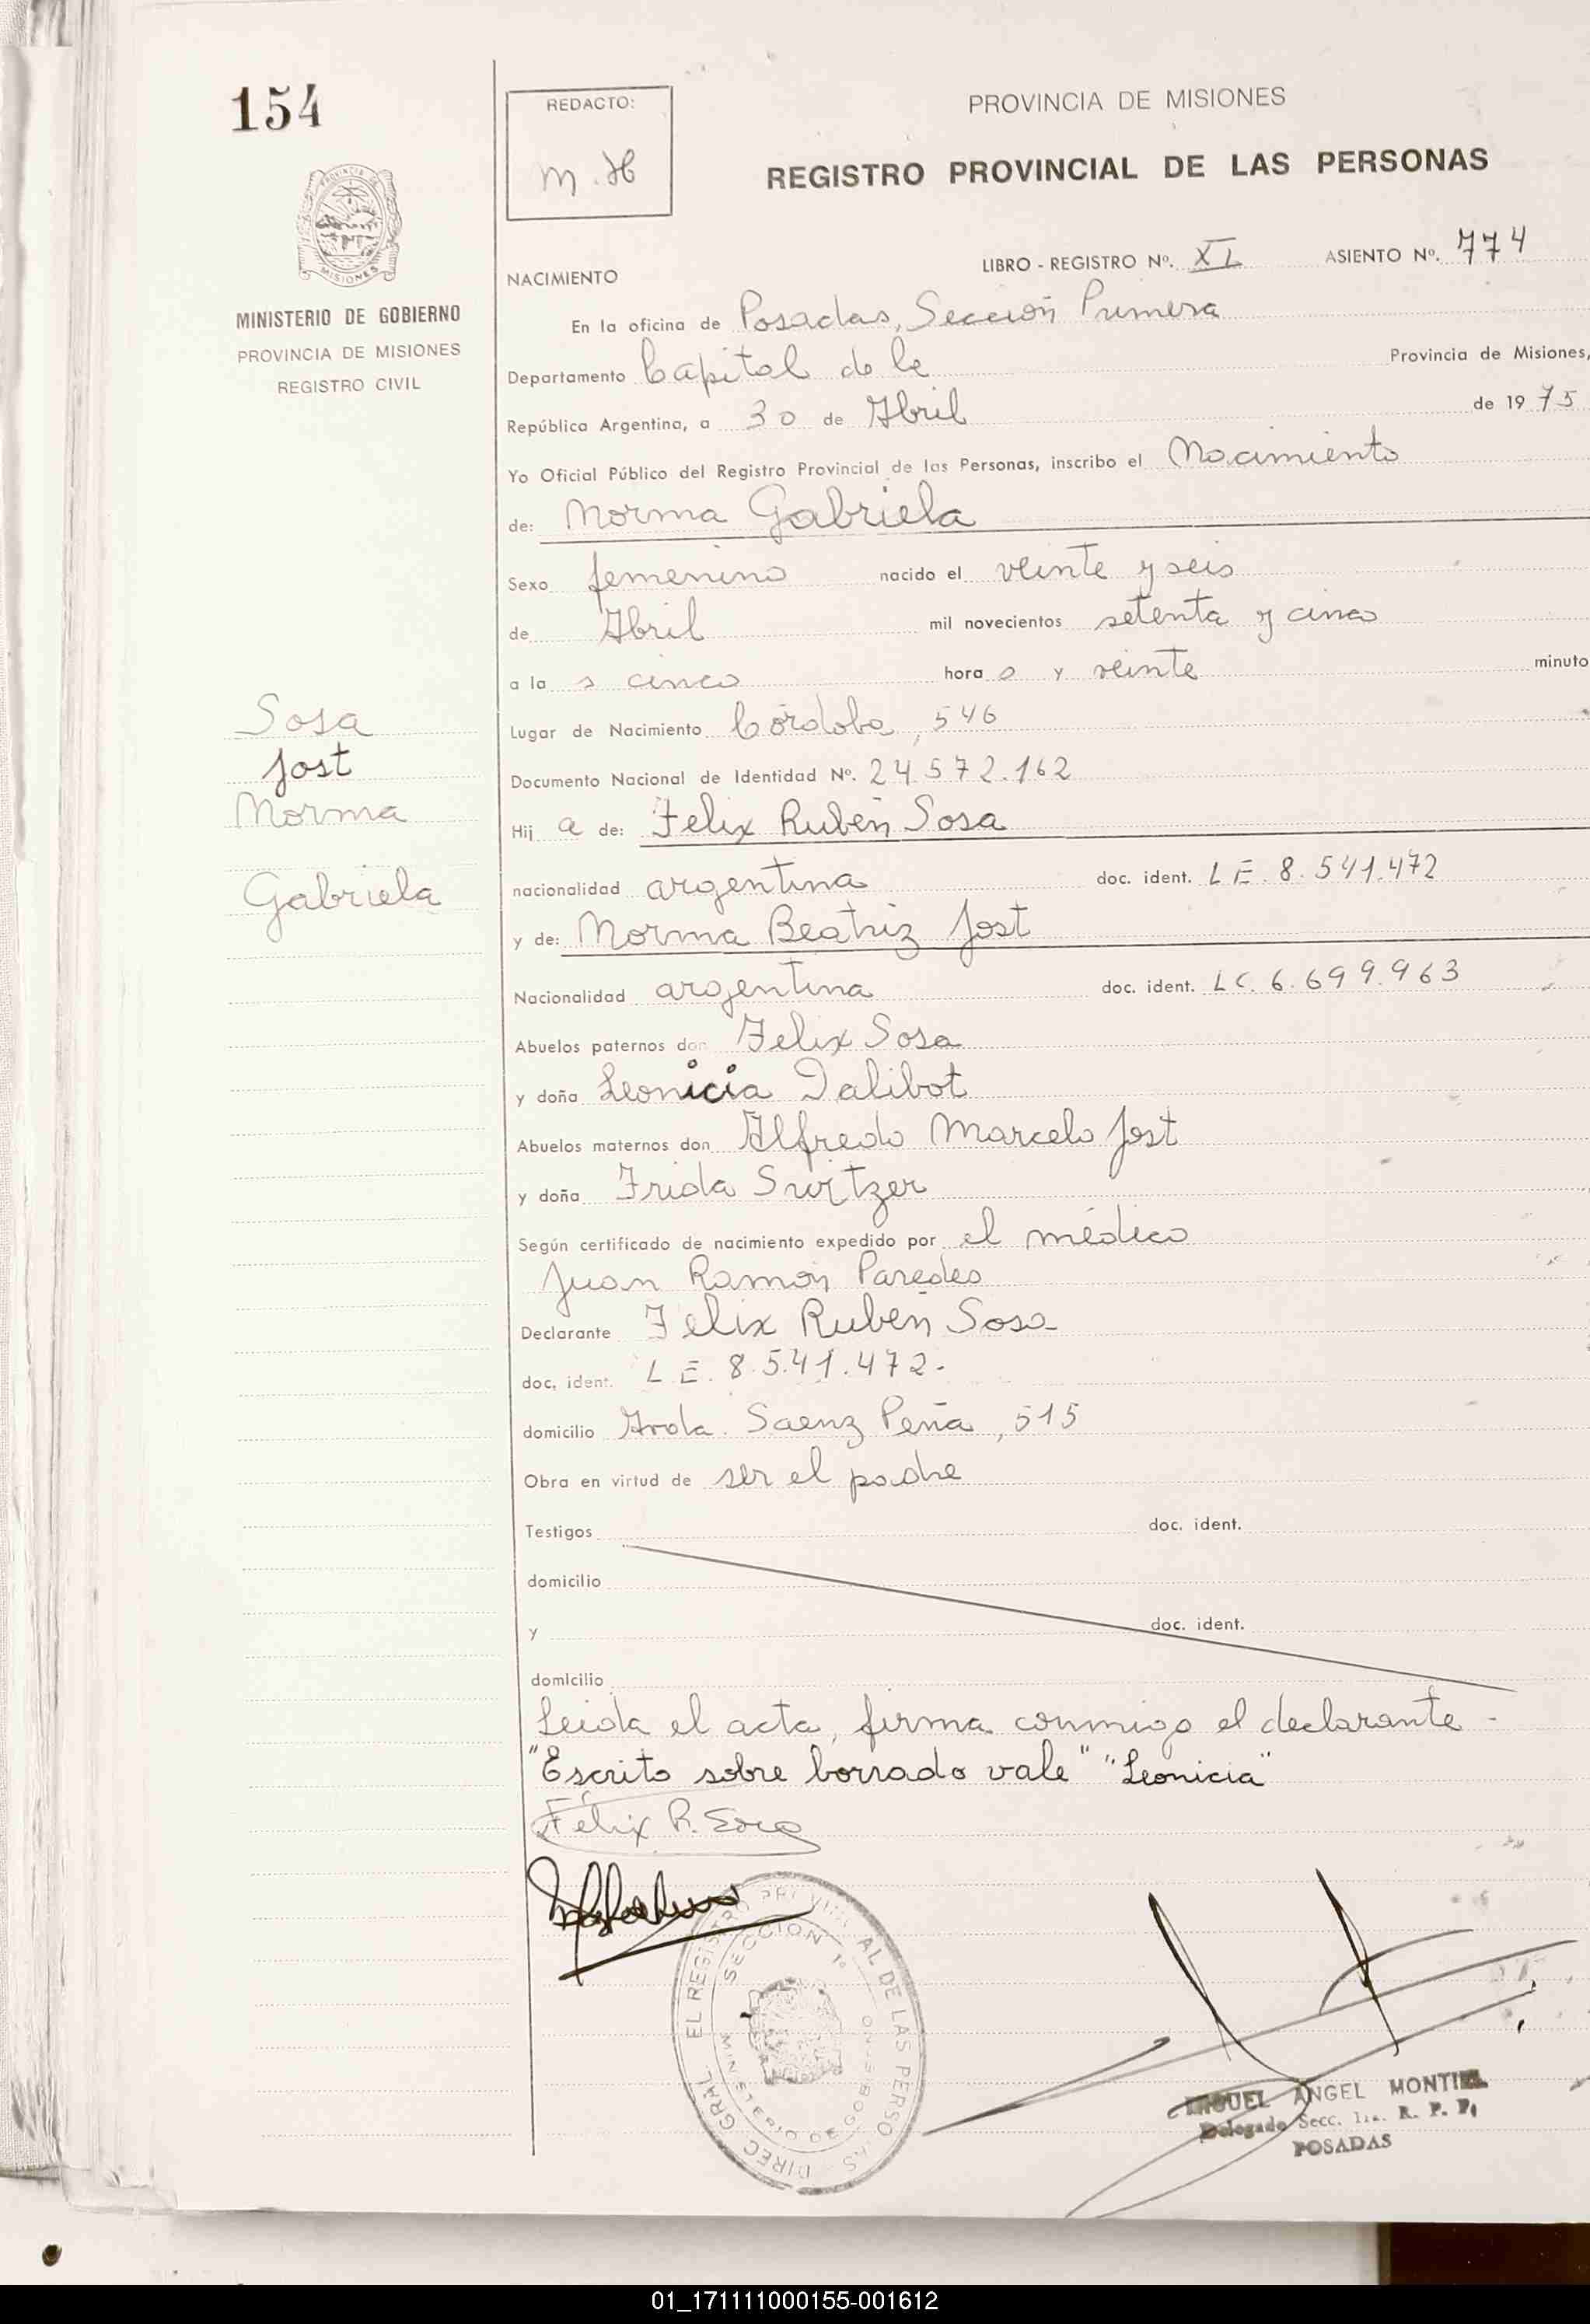 154
REDACTO:
M.H
PROVINCIA DE MISIONES
REGISTRO PROVINCIAL DE LAS PERSONAS
MINISTERIO DE GOBIERNO
PROVINCIA DE MISIONES
REGISTRO CIVIL
LIBRO - REGISTRO Nº. XI ASIENTO Nº. 774
NACIMIENTO
En la oficina de Posadas, Sección Primera
Departamento Capital de la Provincia de Misiones,
República Argentina, a 30 de Abril de 1975
Yo Oficial Público del Registro Provincial de las Personas, inscribo el Nacimiento
de: Norma Gabriela
Sexo femenino nacido el veinte y seis
de Abril mil novecientos setenta y cinco
a la s cinco hora s y veinte minuto
Lugar de Nacimiento Córdoba, 546
Documento Nacional de Identidad Nº. 24.572.162
Hij a de: Felix Rubén Sosa
nacionalidad argentina doc. ident. LE. 8.541.472
y de: Norma Beatriz Jost
Nacionalidad argentina doc. ident. LC. 6.699.963
Abuelos paternos don Felix Sosa
y doña Leonicia Dalibot
Abuelos maternos don Alfredo Marcelo Jost
y doña Frida Switzer
Según certificado de nacimiento expedido por el médico
Juan Ramón Paredes
Declarante Felix Rubén Sosa
doc. ident. LE. 8.541.472.
domicilio Avda. Saenz Peña, 515
Obra en virtud de ser el padre
Testigos doc. ident.
domicilio
y doc. ident.
domicilio
Leida el acta, firma conmigo el declarante -
"Escrito sobre borrado vale" "Leonicia"
Félix R. Sosa
Sosa
Jost
Norma
Gabriela
DIREC GRAL EL REGISTRO PROVINCIAL DE LAS PERSONAS
SECCION 1º
MINISTERIO DE GOBIERNO
MIGUEL ANGEL MONTIEL
Delegado Secc. 1ra. R. P. P.
POSADAS
01_171111000155-001612